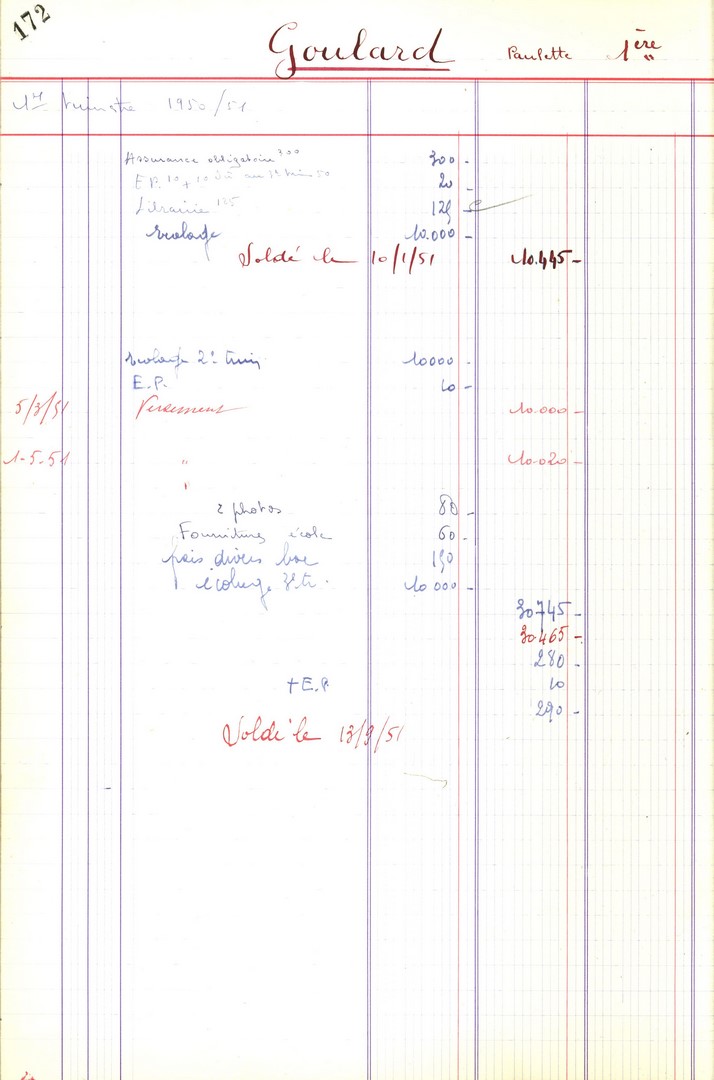 172
Goulard Paulette 1ère "
1er trimestre 1950/51
Assurance obligatoire 300 300 -
E.P. 10 + 10 dû au 3e trim 50 20 -
Librairie 125 125 -
écolage 10.000 -
Soldé le 10/1/51 10.445 -
écolage 2e trim 10000 -
E.P. 10 -
5/3/51 Versement 10.000 -
1-5-51 " 10.020 -
"
2 photos 80 -
Fournitures école 60 -
frais divers bac 150
écolage 3e tr. 10 000 -
30745 -
30.465 -
280 -
+ E.P. 10
290 -
Soldé le 13/9/51